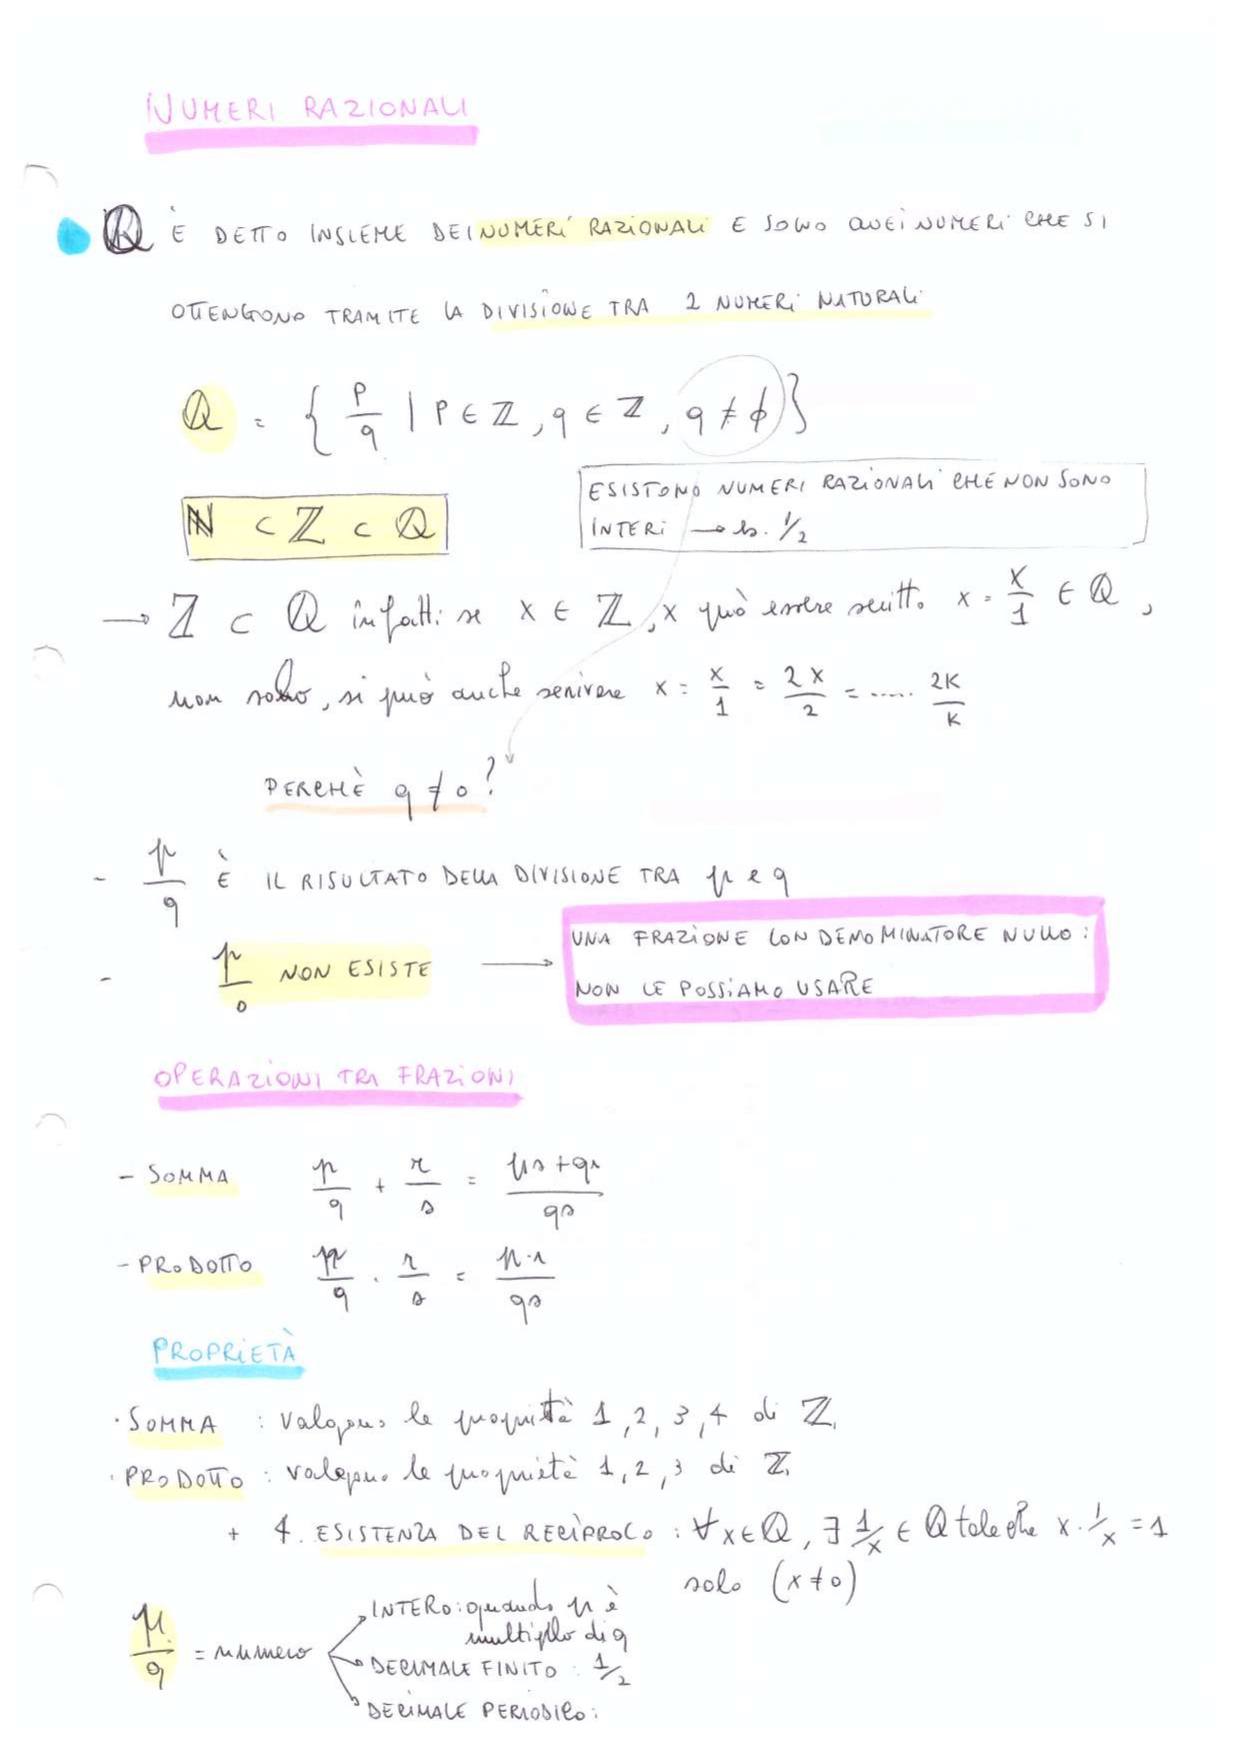 NUMERI RAZIONALI
Q È DETTO INSIEME DEI NUMERI RAZIONALI E SONO QUEI NUMERI CHE SI
OTTENGONO TRAMITE LA DIVISIONE TRA 2 NUMERI NATURALI
Q = { p/q | p ∈ Z, q ∈ Z, q ≠ ∅ }
N ⊂ Z ⊂ Q
ESISTONO NUMERI RAZIONALI CHE NON SONO
INTERI → Es. 1/2
→ Z ⊂ Q infatti se x ∈ Z, x può essere scritto x = x/1 ∈ Q,
non solo, si può anche scrivere x = x/1 = 2x/2 = ..... 2K/K
PERCHÈ q ≠ 0?
- p/q È IL RISULTATO DELLA DIVISIONE TRA p e q
- p/0 NON ESISTE → UNA FRAZIONE CON DENOMINATORE NULLO:
NON LE POSSIAMO USARE
OPERAZIONI TRA FRAZIONI
- SOMMA p/q + r/s = ps+qr/qs
- PRODOTTO p/q · r/s = p·r/qs
PROPRIETÀ
· SOMMA : valgono le proprietà 1, 2, 3, 4 di Z.
· PRODOTTO : valgono le proprietà 1, 2, 3 di Z.
+ 4. ESISTENZA DEL RECIPROCO : ∀x∈Q, ∃ 1/x ∈ Q tale che x · 1/x = 1
solo (x≠0)
p/q = numero
INTERO: quando p è
multiplo di q
DECIMALE FINITO : 1/2
DECIMALE PERIODICO :